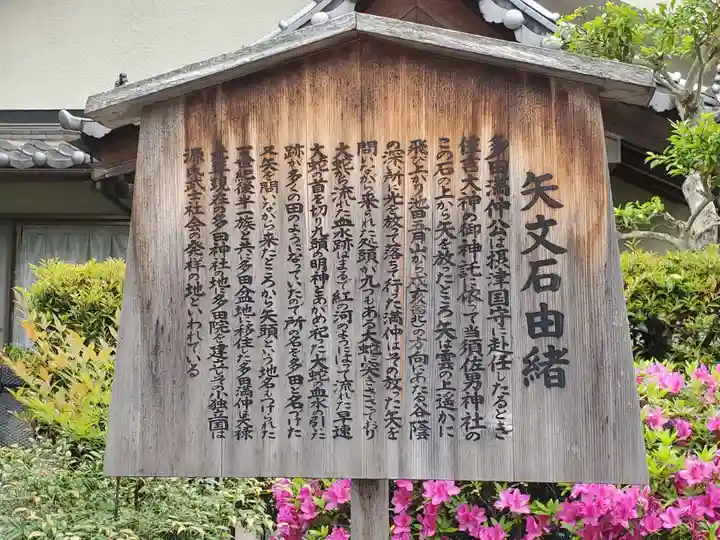 矢文石由緒
多田満仲公は摂津国守に赴任したるとき
住吉大神の御神託に依って当須佐男神社の
この石の上から矢を放ったところ矢は雲の上遥かに
飛び上り池田五月山から戌亥(西北)の方向にある谷蔭
の深い所に光を放って落ちて行った満仲はその放った矢を
問いながら来られた処頭が九つもある大蛇に突きささっており
大蛇から流れた血水跡はまるで紅の河のようになって流れた早速
大蛇の首を切り九頭の明神とあがめ祀った大蛇の血水の引いた
跡が多くの田のようになっていたので所の名を多田と名づけた
又矢を問いながら来たところから矢問という地名もつけられた
一世紀後半一族と共に多田盆地に移住した多田満仲は天禄
元年現在の多田神社の地に多田院を建立しその小独立国は
源氏武士社会の発祥の地といわれている